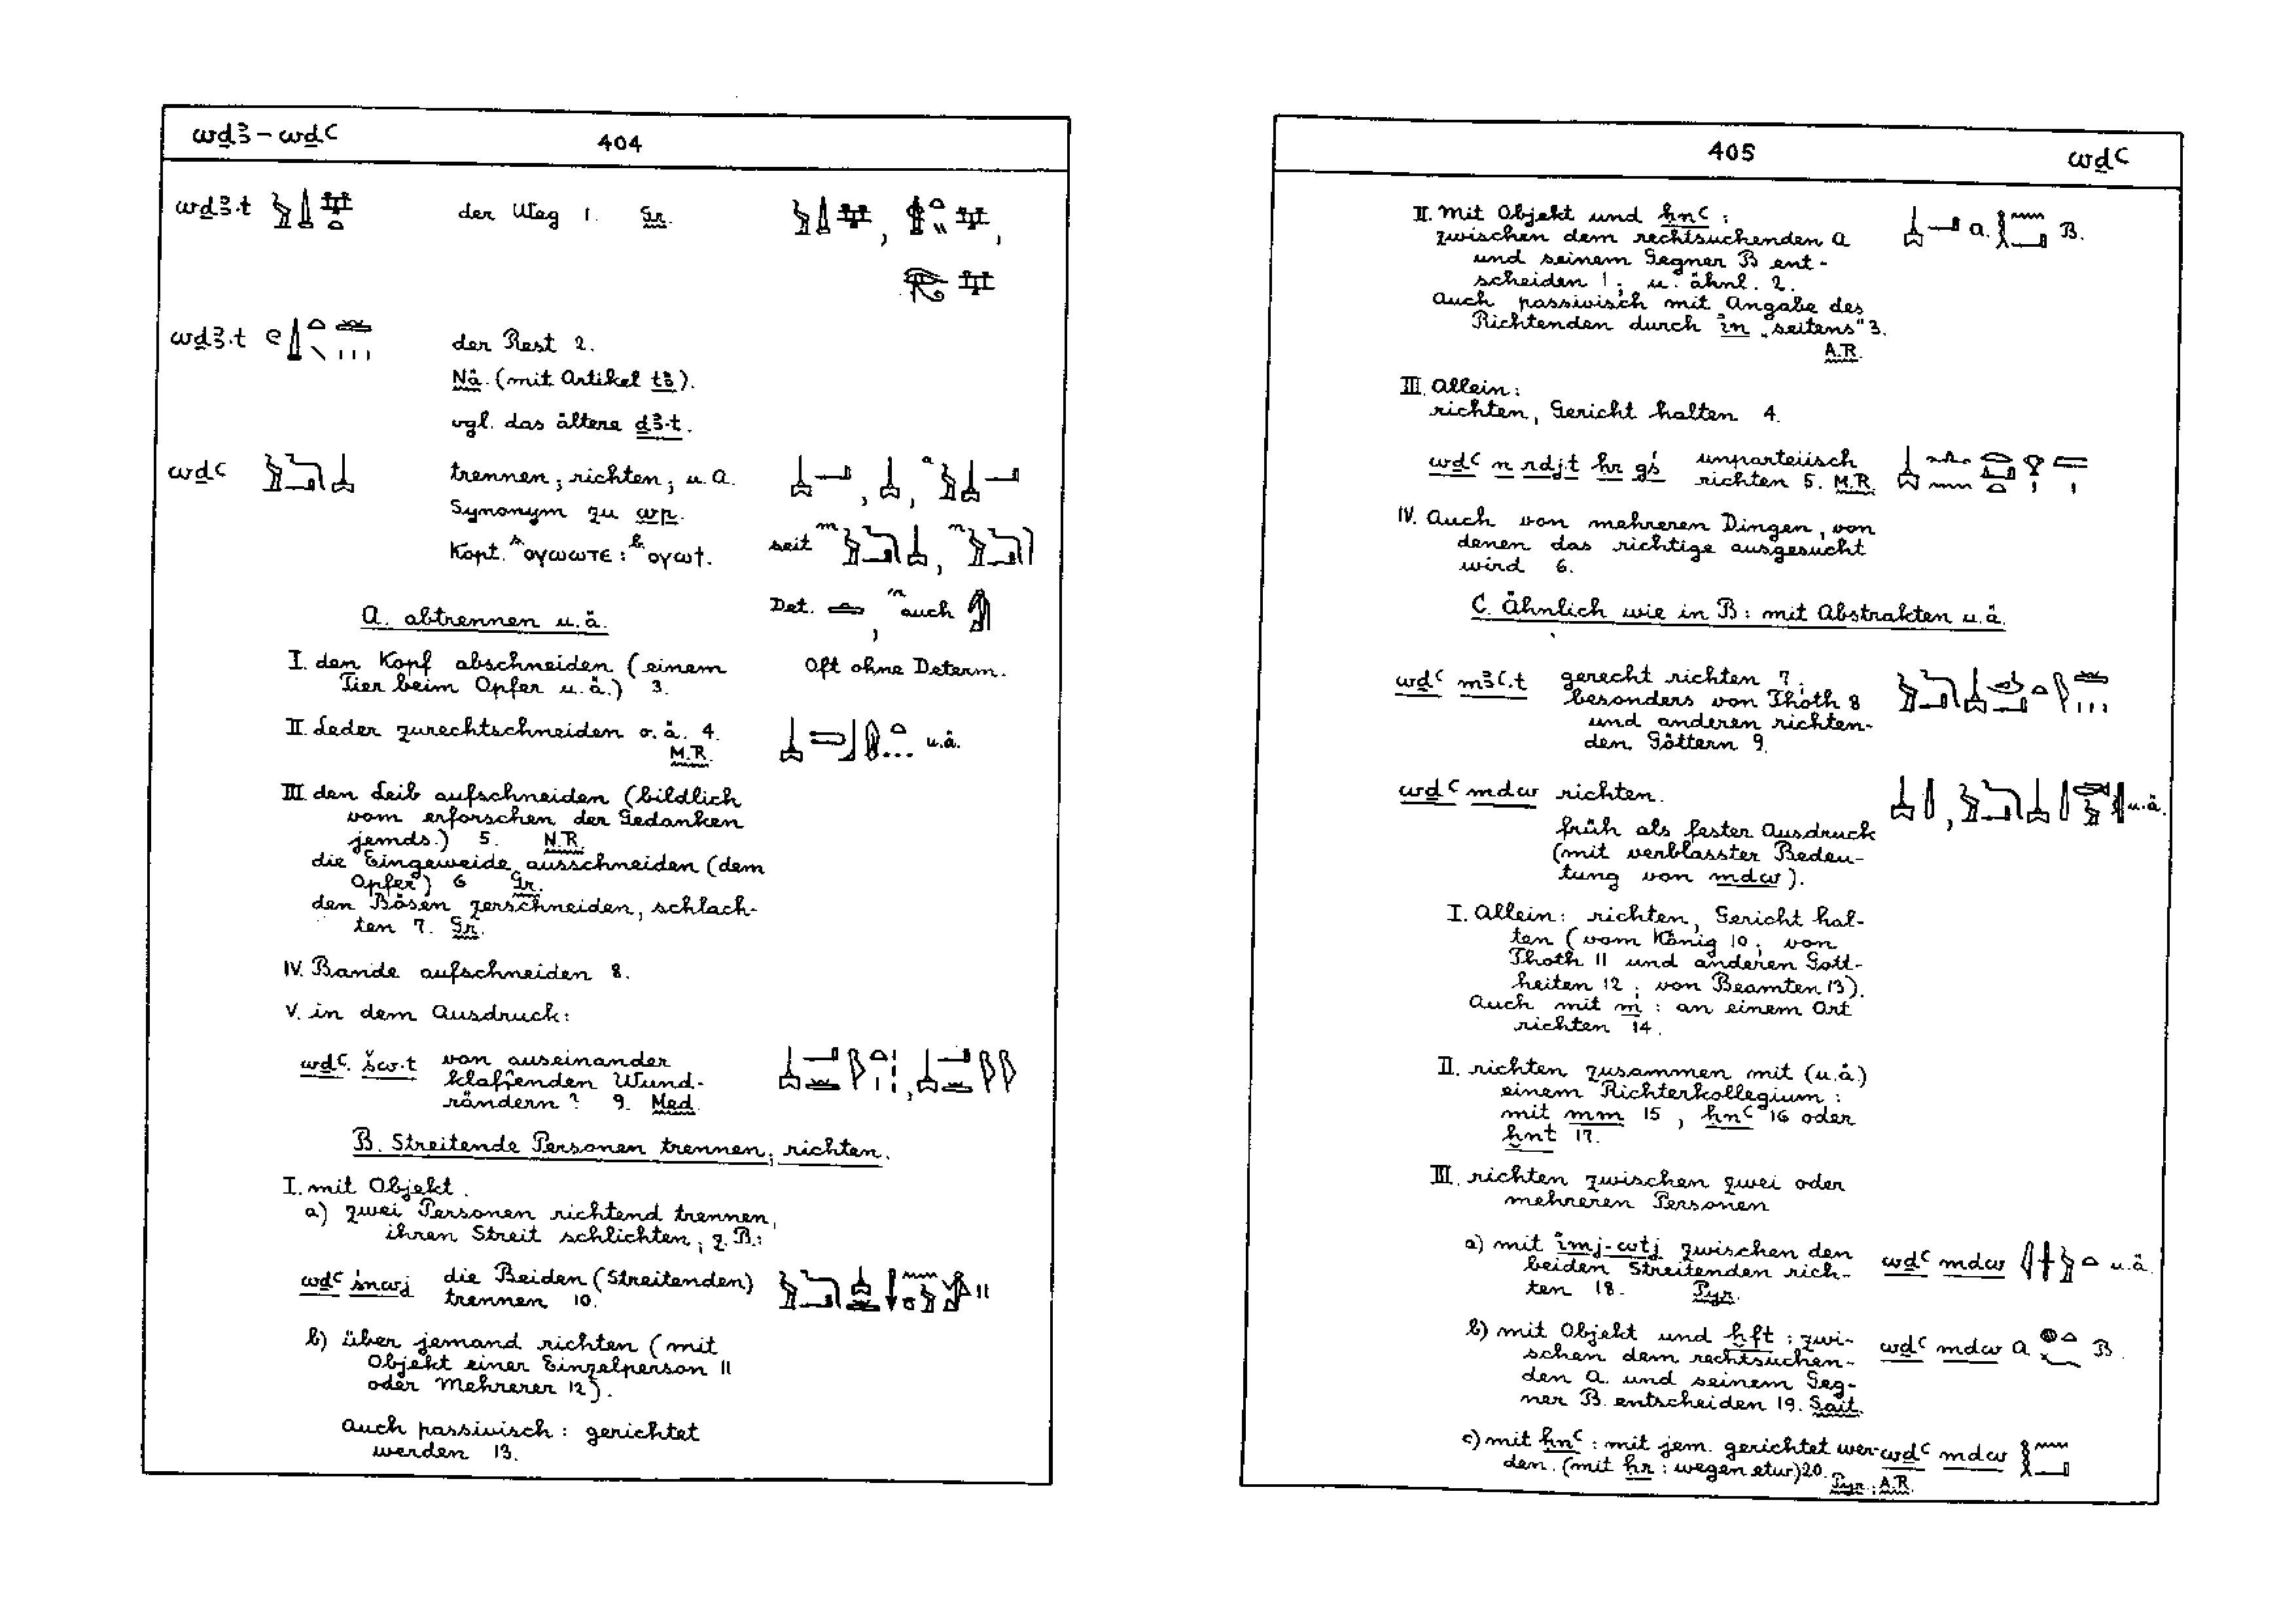 wḏꜣ – wḏꜥ 404
wḏꜣ.t der Weg 1. Gr.
wḏꜣ.t der Rest 2.
Nä. (mit Artikel tꜣ).
vgl. das ältere ḏꜣ.t.
wḏꜥ trennen; richten; u.a.
Synonym zu wp.
seit
Kopt. ⲟⲩⲱⲱⲧⲉ: ⲟⲩⲱϯ.
Det. auch
A. abtrennen u.ä.
I. den Kopf abschneiden (einem Oft ohne Determ.
Tier beim Opfer u.ä.) 3.
II. Leder zurechtschneiden o.ä. 4. u.ä.
M.R.
III. den Leib aufschneiden (bildlich
vom erforschen der Gedanken
jemds.) 5. N.R.
die Eingeweide ausschneiden (dem
Opfer) 6 Gr.
den Bösen zerschneiden, schlach-
ten 7. Gr.
IV. Bande aufschneiden 8.
V. in dem Ausdruck:
wḏꜥ šw.t von auseinander
klaffenden Wund-
rändern? 9. Med.
B. Streitende Personen trennen; richten.
I. mit Objekt.
a) zwei Personen richtend trennen,
ihren Streit schlichten; z.B.:
wḏꜥ śnwj die Beiden (Streitenden)
trennen 10.
b) über jemand richten (mit
Objekt einer Einzelperson 11
oder Mehrerer 12).
Auch passivisch: gerichtet
werden 13.
405 wḏꜥ
II. Mit Objekt und ḥnꜥ: A. B.
zwischen dem rechtsuchenden A
und seinem Gegner B ent-
scheiden 1; u. ähnl. 2.
Auch passivisch mit Angabe des
Richtenden durch in „seitens" 3.
A.R.
III. Allein:
richten, Gericht halten 4.
wḏꜥ n rdj.t ḥr gś unparteiisch
richten 5. M.R.
IV. Auch von mehreren Dingen, von
denen das richtige ausgesucht
wird 6.
C. Ähnlich wie in B: mit Abstrakten u.ä.
wḏꜥ mꜣꜥ.t gerecht richten 7.
besonders von Thoth 8
und anderen richten-
den Göttern 9.
wḏꜥ mdw richten. u.ä.
früh als fester Ausdruck
(mit verblasster Bedeu-
tung von mdw).
I. Allein: richten, Gericht hal-
ten (vom König 10; von
Thoth 11 und anderen Gott-
heiten 12; von Beamten 13).
Auch mit m: an einem Ort
richten 14.
II. richten zusammen mit (u.ä.)
einem Richterkollegium:
mit mm 15, ḥnꜥ 16 oder
ḫnt 17.
III. richten zwischen zwei oder
mehreren Personen
a) mit imj-wtj zwischen den wḏꜥ mdw u.ä.
beiden Streitenden rich-
ten 18. Pyr.
b) mit Objekt und ḫft: zwi- wḏꜥ mdw A B.
schen dem rechtsuchen-
den A. und seinem Geg-
ner B. entscheiden 19. Sait.
c) mit ḥnꜥ: mit jem. gerichtet wer- wḏꜥ mdw
den. (mit ḥr: wegen etw.) 20. Pyr.; A.R.